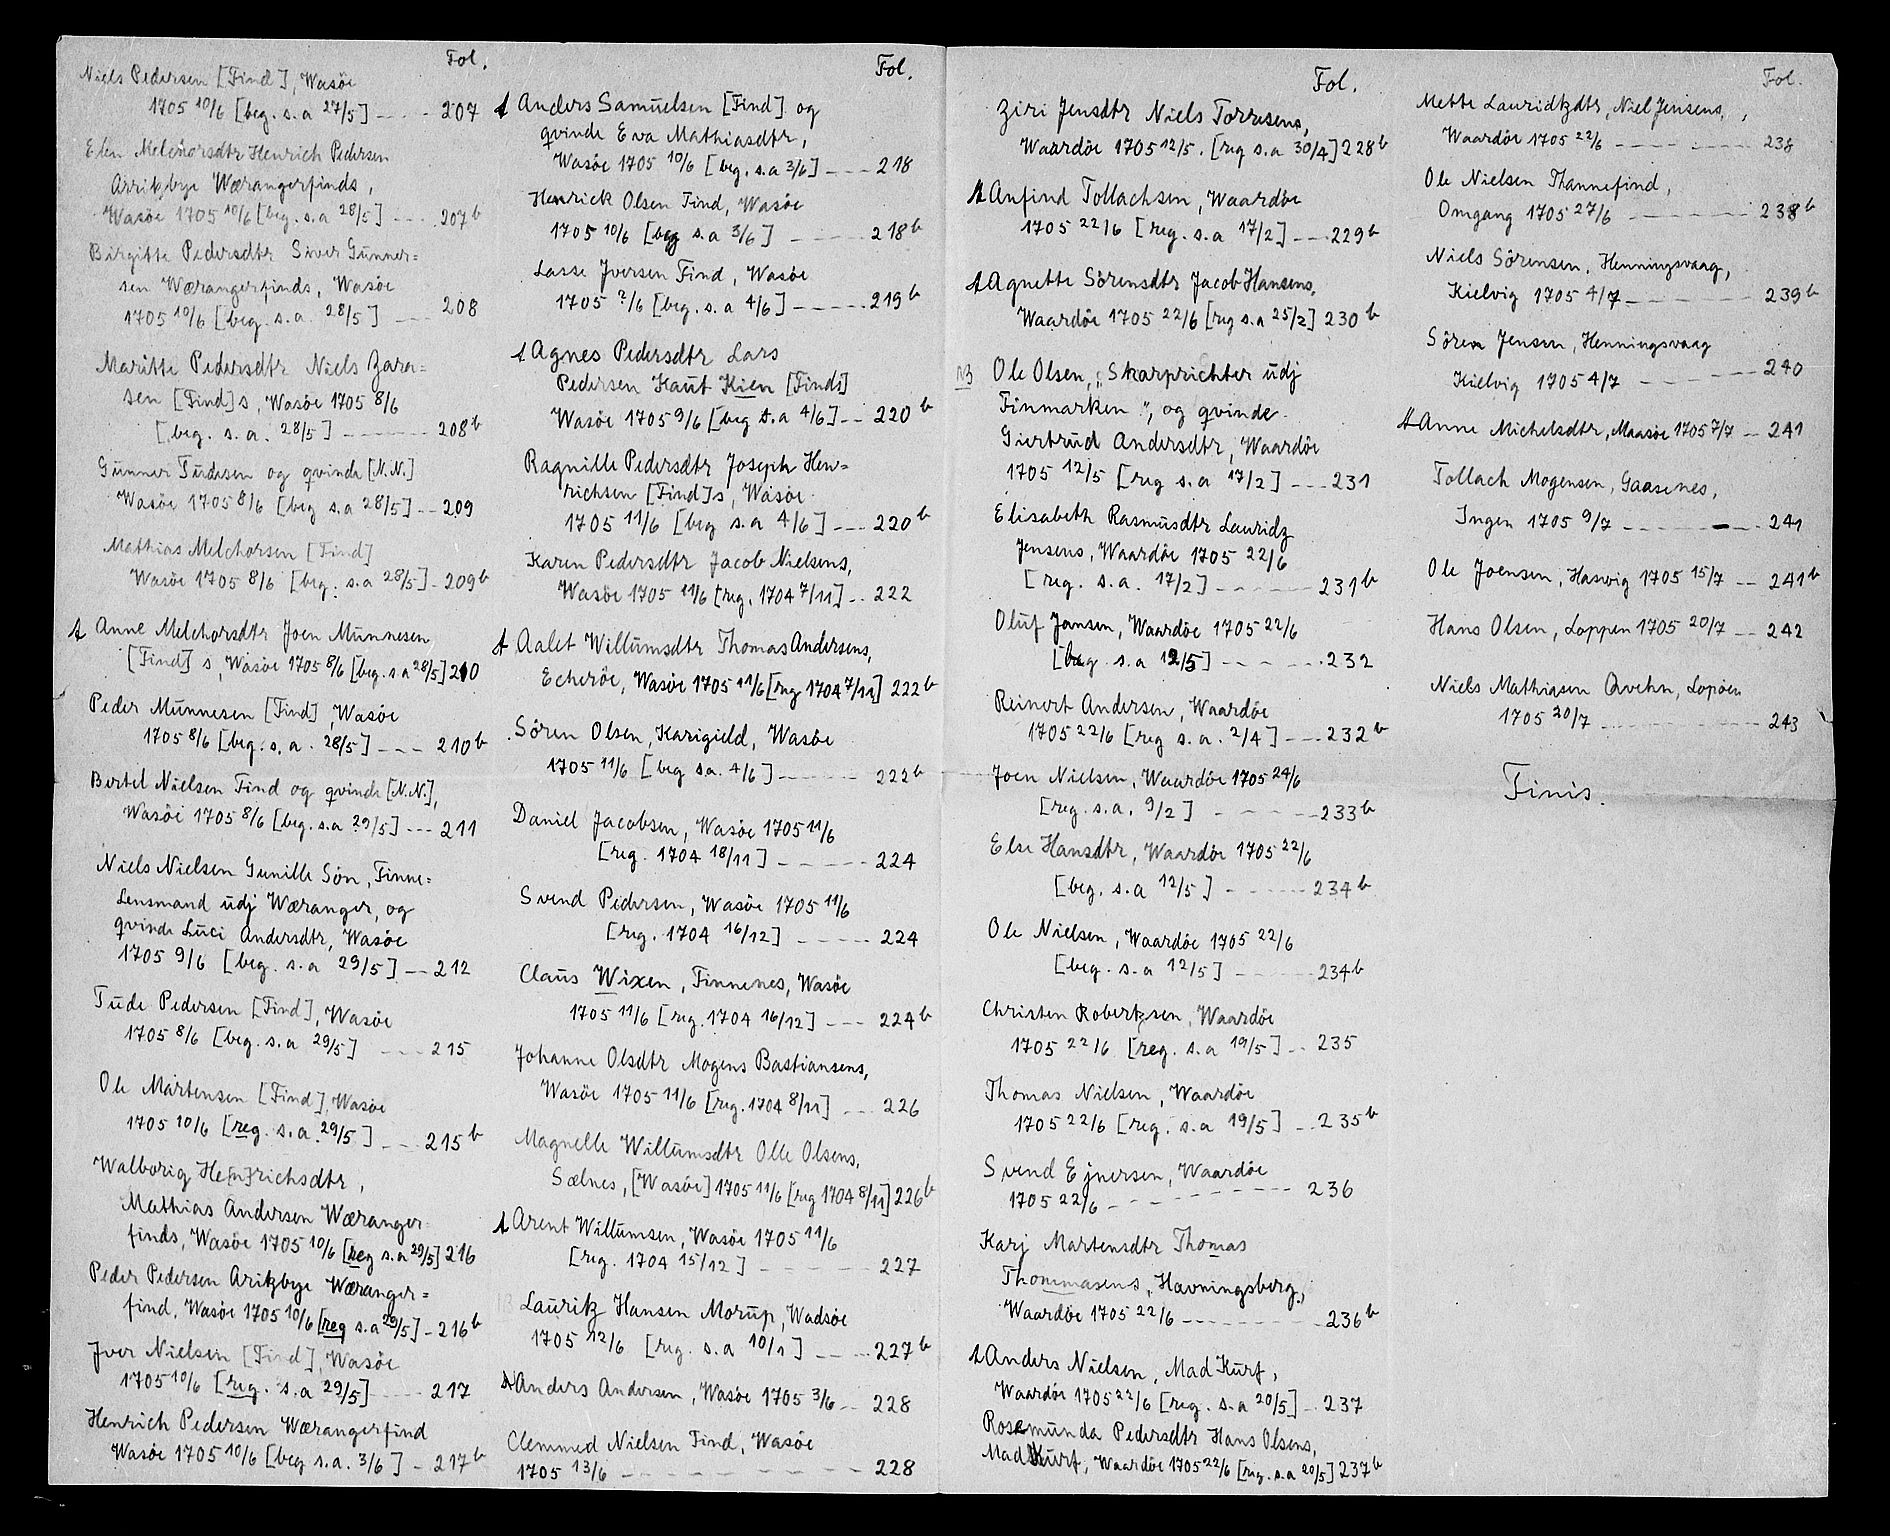 Fol.
Niels Pedersen [Find], Wasöe
1705 10/6 [beg. s. a 27/5] ---- 207
Elen Melchorsdtr Henrich Pedersen
Arritzbye Wærangerfinds,
Wasöe 1705 10/6 [beg. s. a 28/5] --- 207b
Birgitte Pedersdtr Siver Gunner=
sen Wærangerfinds, Wasöe
1705 10/6 [beg. s. a. 28/5] --- 208
Maritte Pedersdtr Niels Zara=
sen [Find]s, Wasöe 1705 8/6
[beg. s. a. 28/5] ---- 208b
Gunner Tudesen og qvinde [N.N.]
Wasöe 1705 8/6 [beg s. a 28/5] -- 209
Mathias Melchorsen [Find]
Wasöe 1705 8/6 [beg. s. a 28/5] - 209b
Anne Melchorsdtr Joen Munnesen
[Find] s, Wasöe 1705 8/6 [beg. s a 28/5] 210
Peder Munnesen [Find], Wasöe
1705 8/6 [beg. s. a. 28/5] --- 210b
Bertel Nielsen Find og qvinde [N.N.],
Wasöe 1705 8/6 [beg. s. a 29/5] --- 211
Niels Nielsen Gunille Sön, Finne=
Lensmand udj Wæranger, og
qvinde Luci Andersdtr, Wasöe
1705 9/6 [beg. s. a 29/5] -- 212
Tude Pedersen [Find], Wasöe
1705 8/6 [beg. s. a 29/5] --- 215
Ole Mårtensen [Find], Wasöe
1705 10/6 [reg. s. a. 29/5] --- 215b
Walborig He[n]richsdtr,
Mathias Andersen Wæranger=
finds, Wasöe 1705 10/6 [beg s. a 29/5] 216
Peder Pedersen Aritzbye Wæranger=
find, Wasöe 1705 10/6 [reg s. a 29/5] - 216b
Jver Nielsen [Find], Wasöe
1705 10/6 [reg. s. a 29/5] ---- 217
Henrich Pedersen Wærangerfind
Wasöe 1705 10/6 [beg s. a. 3/6] - 217b
Fol.
Anders Samuelsen [Find] og
qvinde Eva Mathiasdtr,
Wasöe 1705 10/6 [beg. s. a 3/6] --- 218
Henrick Olsen Find, Wasöe
1705 10/6 [beg s. a 3/6] ---- 218b
Lasse Jversen Find, Wasöe
1705 ?/6 [beg. s. a 4/6] ---- 219b
Agnes Pedersdtr Lars
Pedersen Kaut Kien [Finds]
Wasöe 1705 9/6 [beg s. a 4/6] -- 220b
Ragnille Pedersdtr Joseph Hen=
richsen [Find]s, Wasöe
1705 11/6 [beg s. a 4/6] --- 220b
Karen Pedersdtr Jacob Nielsens,
Wasöe 1705 11/6 [reg. 1704 7/11] -- 222
Aalet Willumsdtr Thomas Andersens,
Echeröe, Wasöe 1705 11/6 [reg 1704 7/11] 222b
Sören Olsen, Karigield, Wasöe
1705 11/6 [beg s a. 4/6] ----- 222b
Daniel Jacobsen, Wasöe 1705 11/6
[reg. 1704 18/11] ----- 224
Svend Pedersen, Wasöe 1705 11/6
[reg. 1704 16/12] ----- 224
Claus Wixen, Finnenes, Wasöe
1705 11/6 [reg. 1704 16/12] --- 224b
Johanne Olsdtr Mogens Bastiansens,
Wasöe 1705 11/6 [reg. 1704 8/11] --- 226
Magnelle Willumsdtr Olle Olsens,
Sælnes, [Wasöe] 1705 11/6 [reg 1704 8/11] 226b
Arent Willumsen, Wasöe 1705 11/6
[reg. 1704 15/12] ------ 227
Lauritz Hansen Morup, Wadsöe
1705 12/6 [reg. s. a 10/1] --- 227b
Anders Andersen, Wasöe 1705 3/6 -- 228
Clemmed Nielsen Find, Wasöe
1705 13/6 -------- 228
Fol.
Ziri Jensdtr Niels Torresens,
Waardöe 1705 12/5. [reg s. a 30/4] 228b
Anfind Tollachsen, Waardöe
1705 22/6 [reg. s. a 17/2] --- 229b
Agnette Sörensdtr Jacob Hansens,
Waardöe 1705 22/6 [reg s. a 25/2] 230b
NB Ole Olsen, "Skarprichter udj
Finmarken", og qvinde
Giertrud Andersdtr, Waardöe
1705 12/5 [reg s. a 17/2] --- 231
Elisabeth Rasmusdtr Lauridz
Jensens, Waardöe 1705 22/6
[reg. s. a. 17/2] ------ 231b
Oluf Jansen, Waardöe 1705 22/6
[beg. s. a 12/5] ----- 232
Reinert Andersen, Waardöe
1705 22/6 [reg s. a. 2/4] --- 232b
Joen Nielsen, Waardöe 1705 24/6
[reg. s. a. 9/2] ---- 233b
Else Hansdtr, Waardöe 1705 22/6
[beg. s. a 12/5] ----- 234b
Ole Nielsen, Waardöe 1705 22/6
[beg. s. a 12/5] ----- 234b
Christen Robertzsen, Waardöe
1705 22/6 [reg. s. a 19/5] -- 235
Thomas Nielsen, Waardöe
1705 22/6 [reg. s. a 19/5] -- 235b
Svend Ejnersen, Waardöe
1705 22/6 --------- 236
Karj Martensdtr Thomas
Thommasens, Havningsberg,
Waardöe 1705 22/6 ------- 236b
Anders Nielsen, Mad Kurf,
Waardöe 1705 22/6 [reg. s. a 20/5] -- 237
Rosemunda Pedersdtr Hans Olsens,
Mad Kurf, Waardöe 1705 22/6 [reg. s. a 20/5] 237b
Fol.
Mette Lauridtzdtr, Niel Jensens,
Waardöe 1705 22/6 ------- 238
Ole Nielsen Thannefind,
Omgang 1705 27/6 ------ 238b
Niels Sörensen, Henningsvaag,
Kielvig 1705 4/7 ------ 239b
Sören Jensen, Henningsvaag
Kielvig 1705 4/7 ----- 240
Anne Michelsdtr, Maasöe 1705 7/7 -- 241
Tollach Mogensen, Gaasenes,
Ingen 1705 9/7 ------- 241
Ole Joensen, Hasvig 1705 15/7 -- 241b
Hans Olsen, Loppen 1705 20/7 -- 242
Niels Mathiasen Qvehn, Lopöen
1705 20/7 -------- 243
Finis.